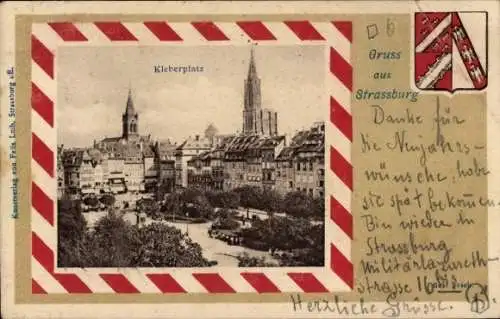 Kleberplatz
Gruss
aus
Strassburg
Kunstverlag von Felix Luib, Strassburg i/E.
Danke für
die Neujahrs-
wünsche, habe
sie spät bekommen.
Bin wieder in
Strassburg
Militärlazareth-
strasse 16
Herzliche Grüsse.